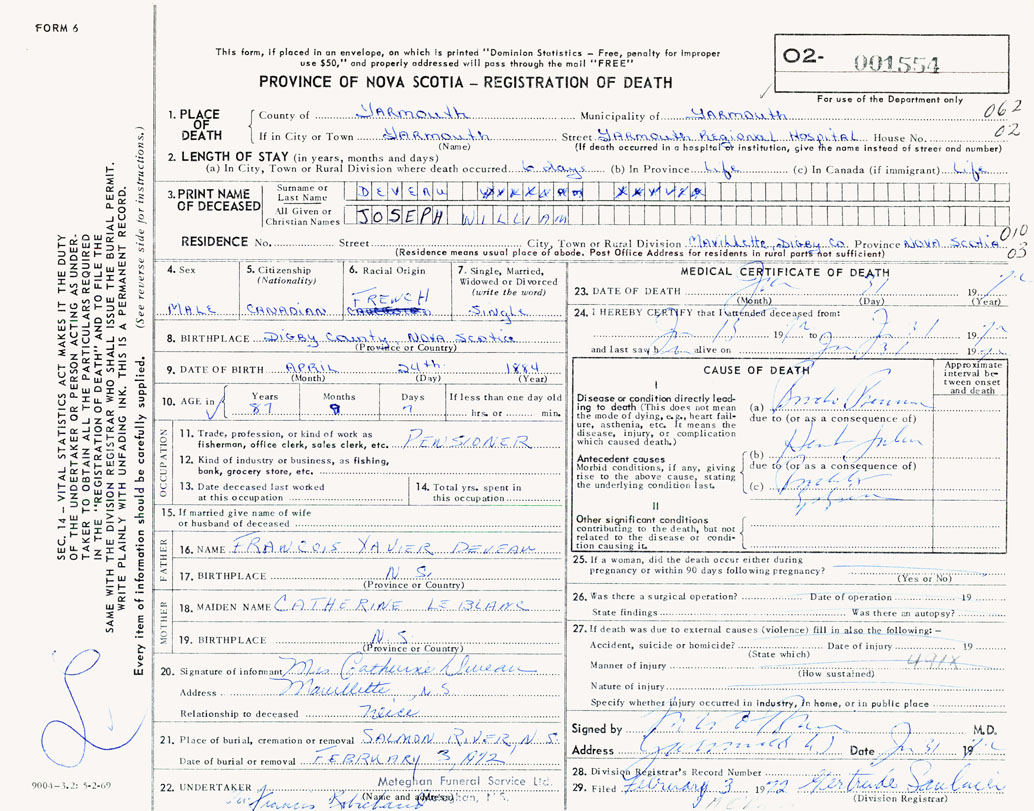 FORM 6
This form, if placed in an envelope, on which is printed "Dominion Statistics – Free, penalty for improper
use $50," and properly addressed will pass through the mail "FREE"
PROVINCE OF NOVA SCOTIA – REGISTRATION OF DEATH
O2- 001554
For use of the Department only
062
02
1. PLACE OF DEATH
County of Yarmouth Municipality of Yarmouth
If in City or Town Yarmouth Street Yarmouth Regional Hospital House No.
(Name) (If death occurred in a hospital or institution, give the name instead of street and number)
2. LENGTH OF STAY (in years, months and days)
(a) In City, Town or Rural Division where death occurred 6 days (b) In Province Life (c) In Canada (if immigrant) Life
3. PRINT NAME OF DECEASED
Surname or Last Name DEVEAU
All Given or Christian Names JOSEPH WILLIAM
RESIDENCE No. Street City, Town or Rural Division Mavillette, Digby Co. Province Nova Scotia
(Residence means usual place of abode. Post Office Address for residents in rural parts not sufficient)
010
03
4. Sex
MALE
5. Citizenship
(Nationality)
CANADIAN
6. Racial Origin
FRENCH
7. Single, Married,
Widowed or Divorced
(write the word)
Single
8. BIRTHPLACE Digby County, Nova Scotia
(Province or Country)
9. DATE OF BIRTH APRIL 24th 1884
(Month) (Day) (Year)
10. AGE in
Years Months Days If less than one day old
87 9 7 hrs. or min.
OCCUPATION
11. Trade, profession, or kind of work as
fisherman, office clerk, sales clerk, etc. PENSIONER
12. Kind of industry or business, as fishing,
bank, grocery store, etc.
13. Date deceased last worked
at this occupation
14. Total yrs. spent in
this occupation
15. If married give name of wife
or husband of deceased
FATHER
16. NAME FRANCOIS XAVIER DEVEAU
17. BIRTHPLACE N.S.
(Province or Country)
MOTHER
18. MAIDEN NAME CATHERINE LEBLANC
19. BIRTHPLACE N.S.
(Province or Country)
20. Signature of informant Mrs Catherine Deveau
Address Mavillette, N.S
Relationship to deceased neice
21. Place of burial, cremation or removal SALMON RIVER, N.S.
Date of burial or removal FEBRUARY 3, 1972
Meteghan Funeral Service Ltd.
22. UNDERTAKER Francis
(Name and address) Meteghan, N.S.
MEDICAL CERTIFICATE OF DEATH
23. DATE OF DEATH Jan 31 1972
(Month) (Day) (Year)
24. I HEREBY CERTIFY that I attended deceased from:
Jan 1972 to Jan 31 1972
and last saw h alive on Jan 31 1972
CAUSE OF DEATH
Approximate
interval be-
tween onset
and death
I
Disease or condition directly lead-
ing to death (This does not mean
the mode of dying, e.g., heart fail-
ure, asthenia, etc. It means the
disease, injury, or complication
which caused death.)
(a)
due to (or as a consequence of)
Antecedent causes
Morbid conditions, if any, giving
rise to the above cause, stating
the underlying condition last.
(b) Heart failure
due to (or as a consequence of)
(c)
II
Other significant conditions
contributing to the death, but not
related to the disease or condi-
tion causing it.
25. If a woman, did the death occur either during
pregnancy or within 90 days following pregnancy?
(Yes or No)
26. Was there a surgical operation? Date of operation 19
State findings Was there an autopsy?
27. If death was due to external causes (violence) fill in also the following: –
Accident, suicide or homicide? Date of injury 19
(State which)
Manner of injury 441X
(How sustained)
Nature of injury
Specify whether injury occurred in industry, in home, or in public place
Signed by M.D.
Address Date Jan 31 1972
28. Division Registrar's Record Number
29. Filed February 3 1972 Gertrude Saulnier
(Division Registrar)
SEC. 14 – VITAL STATISTICS ACT MAKES IT THE DUTY
OF THE UNDERTAKER OR PERSON ACTING AS UNDER-
TAKER TO OBTAIN ALL THE PARTICULARS REQUIRED
IN THE "REGISTRATION OF DEATH" AND TO FILE THE
SAME WITH THE DIVISION REGISTRAR WHO SHALL ISSUE THE BURIAL PERMIT.
WRITE PLAINLY WITH UNFADING INK. THIS IS A PERMANENT RECORD.
Every item of information should be carefully supplied. (See reverse side for instructions.)
9004-3.2: 5-2-69